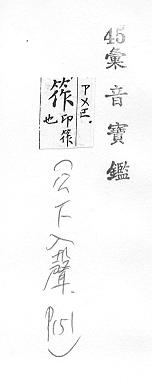 45彙音寶鑑
筰印筰也
(公下入聲. P151)